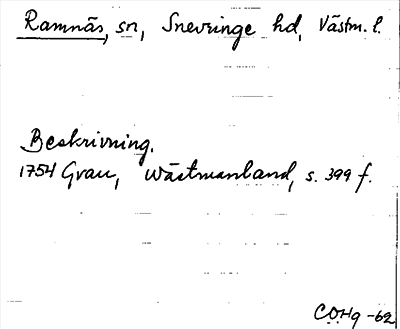 Ramnäs, sn, Snevringe hd, Västm. l.
Beskrivning.
1754 Grau, Wästmanland, s. 399 f.
CÖHg -62